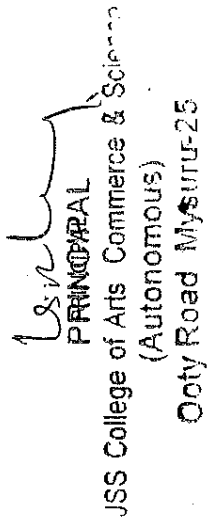 PRINCIPAL
JSS College of Arts Commerce & Science
(Autonomous)
Ooty Road Mysuru-25